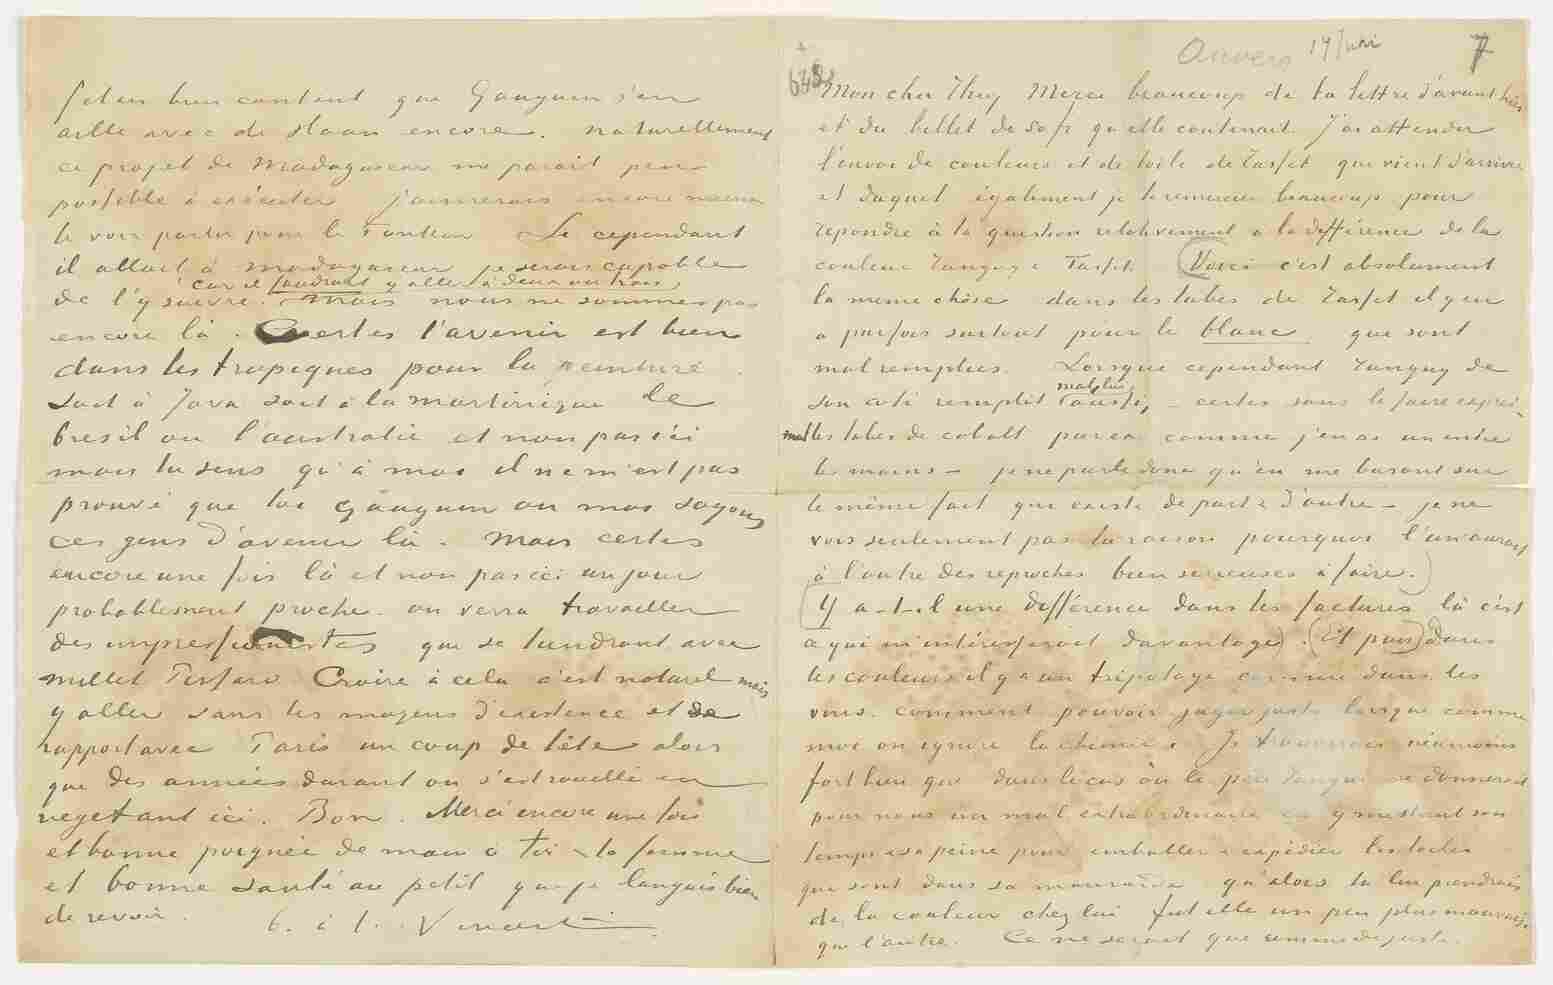 Je suis bien content que Gauguin s'en
aille avec de Haan encore. Naturellement
ce projet de Madagascar me parait peu
possible à exécuter j'aimerais encore mieux
le voir partir pour le Tonkin Si cependant
il allait à Madagascar je serais capable
de l'y suivre.
car il faudrait y aller à deux ou trois.
Mais nous ne sommes pas
encore là. Certes l'avenir est bien
dans les tropiques pour la peinture
soit à Java soit à la martinique le
bresil ou l'australie et non pas ici
mais tu sens qu'à moi il ne m'est pas
prouvé que toi Gauguin ou moi soyons
ces gens d'avenir là. Mais certes
encore une fois là et non pas ici un jour
probablement proche. on verra travailler
des impressionistes qui se tiendront avec
millet Pissaro Croire à cela c'est naturel mais
y aller sans les moyens d'existence et de
rapport avec Paris un coup de tête alors
que des années durant on s'est rouillé en
vegetant ici. Bon. Merci encore une fois
et bonne poignée de main à toi & ta femme
et bonne santé au petit que je languis bien
de revoir. b. à t. Vincent
Auvers 14 Juni
7
638
+
Mon cher Theo, Merci beaucoup de ta lettre d'avant hier
et du billet de 50 fr qu'elle contenait. J'ai attendu
l'envoi de couleurs et de toile de Tasset qui vient d'arriver
et duquel également je te remercie beaucoup pour
repondre à ta question relativement a la différence de la
couleur Tanguy & Tasset. Voici c'est absolument
la meme chose dans les tubes de Tasset il y en
a parfois surtout pour le blanc qui sont
mal remplies. Lorsque cependant Tanguy de
son coté remplit aussi
mal lui
– certes sans le faire expres
mal les tubes de cobalt par ex comme j'en ai un entre
le moins – je ne parle donc qu'en me basant sur
le même fait qui existe de part & d'autre – je ne
vois seulement pas la raison pourquoi l'un aurait
à l'autre des reproches bien serieuses à faire.)
(Y a-t-il une différence dans les factures là c'est
a qui m'intéresserait davantage). (Et puis) dans
les couleurs il y a un tripotage comme dans les
vins. comment pouvoir juger juste lorsque comme
moi on ignore la chimie. Je trouverais néanmoins
fort bien que dans le cas où le père Tanguy se donnerait
pour nous un mal extraordinaire en y mettant son
temps & sa peine pour emballer & expédier les toiles
qui sont dans sa mansarde qu'alors tu lui prendrais
de la couleur chez lui fut elle un peu plus mauvaise
que l'autre. Ce ne serait que comme de juste.